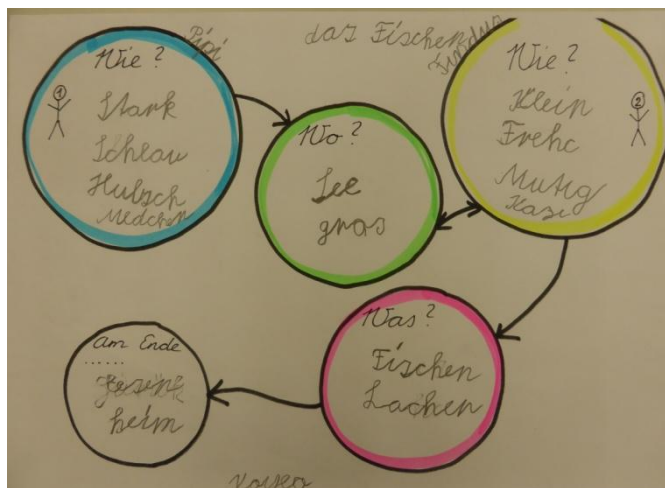 Pipi
das Fischen
Findus
Wie?
1
Stark
Schlau
Hubsch
Medchen
Wo?
See
gros
Wie?
2
Klein
Frehc
Mutig
Kaze
Was?
Fischen
Lachen
am Ende
......
heim